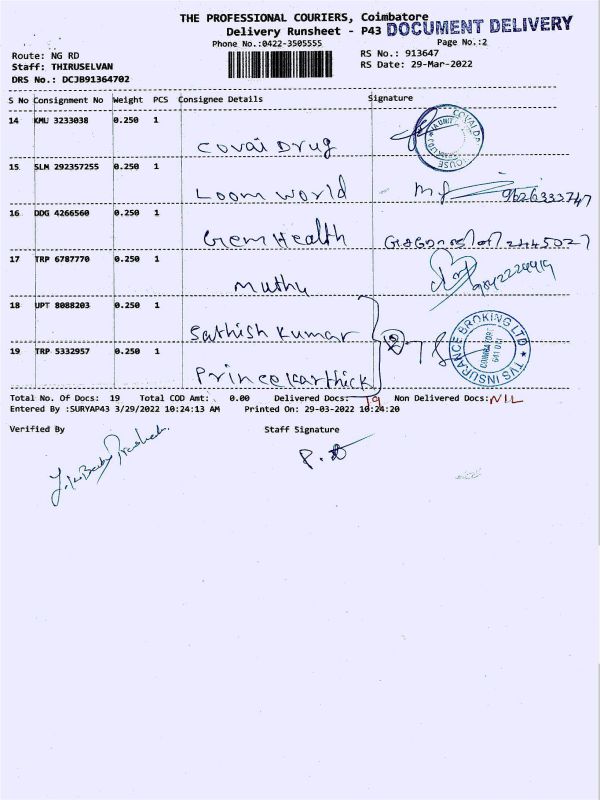 THE PROFESSIONAL COURIERS, Coimbatore
Delivery Runsheet - P43 DOCUMENT DELIVERY
Phone No.:0422-3505555 Page No.:2
Route: NG RD RS No.: 913647
Staff: THIRUSELVAN RS Date: 29-Mar-2022
DRS No.: DCJB91364702
S No Consignment No Weight PCS Consignee Details Signature
14 KMU 3233038 0.250 1
Covai Drug
15 SLM 292357255 0.250 1
Loom World 9626333747
16 DDG 4266560 0.250 1
Gem Health
17 TRP 6787770 0.250 1
Muthu
18 UPT 8088203 0.250 1
Sathish Kumar
19 TRP 5332957 0.250 1
Prince Karthick
2
TVS INSURANCE BROKING LTD
COIMBATORE
641 011
Total No. Of Docs: 19 Total COD Amt: 0.00 Delivered Docs: 19 Non Delivered Docs: NIL
Entered By :SURYAP43 3/29/2022 10:24:13 AM Printed On: 29-03-2022 10:24:20
Verified By Staff Signature